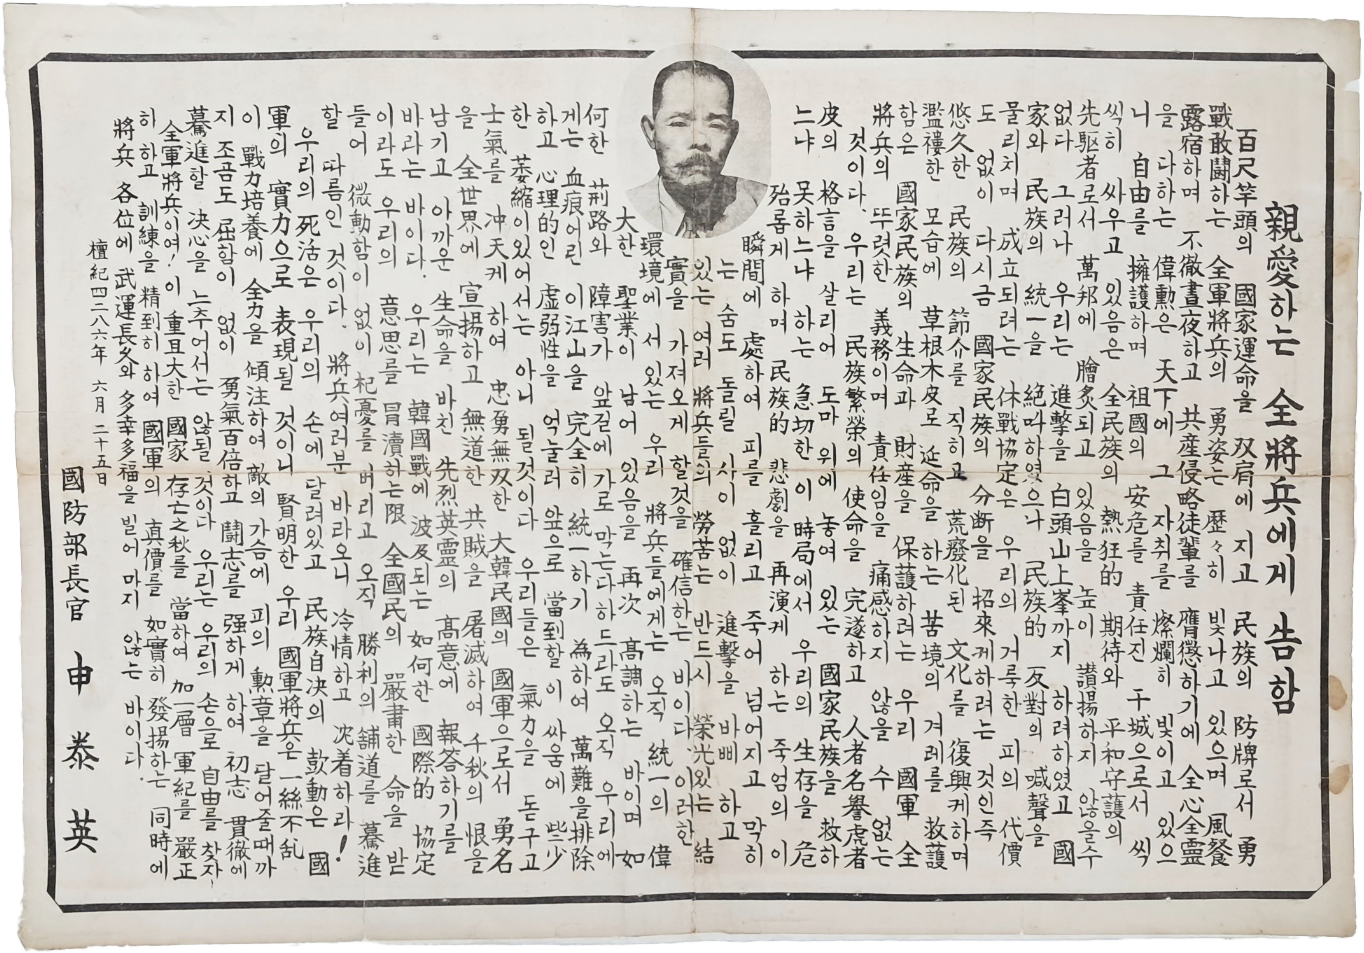 親愛하는 全將兵에게 告함
百尺竿頭의 國家運命을 双肩에 지고 民族의 防牌로서 勇
戰敢鬪하는 全軍將兵의 勇姿는 歷々히 빛나고 있으며 風餐
露宿하며 不徹晝夜하고 共産侵略徒輩를 膺懲하기에 全心全靈
을 다하는 偉勳은 天下에 그 자취를 燦爛히 빛이고 있으
니 自由를 擁護하며 祖國의 安危를 責任진 干城으로서 씩
씩히 싸우고 있음은 全民族의 熱狂的 期待와 平和守護의
先驅者로서 萬邦에 膾炙되고 있음을 높이 讚揚하지 않을수
없다 그러나 우리는 進擊을 白頭山上峯까지 하려하였고 國
家와 民族의 統一을 絶叫하였으나 民族的 反對의 喊聲을
물리치며 成立되려는 休戰協定은 우리의 거룩한 피의 代價
도 없이 다시금 國家民族의 分断을 招來케하려는 것인즉
悠久한 民族의 節介를 직히고 荒廢化된 文化를 復興케하며
濫褸한 모습에 草根木皮로 延命을 하는 苦境의 겨레를 救護
함은 國家民族의 生命과 財産을 保護하려는 우리 國軍 全
將兵의 뚜렷한 義務이며 責任임을 痛感하지 않을 수 없는
것이다. 우리는 民族繁榮의 使命을 完遂하고 人者名譽虎者
皮의 格言을 살리어 도마 위에 놓여 있는 國家民族을 救하
느냐 못하느냐 하는 急切한 이 時局에서 우리의 生存을 危
殆롭게 하며 民族的 悲劇을 再演케 하는 죽엄의 이
瞬間에 處하여 피를 흘리고 죽어 넘어지고 막히
는 숨도 돌릴 사이 없이 進擊을 바삐 하고
있는 여러 將兵들의 勞苦는 반드시 榮光있는 結
實을 가져오게 할것을 確信하는 바이다. 이러한
環境에 서 있는 우리 將兵들에게는 오직 統一의 偉
大한 聖業이 남어 있음을 再次 高調하는 바이며 如
何한 荊路와 障害가 앞길에 가로 막는다하드라도 오직 우리에
게는 血痕어린 이江山을 完全히 統一하기 爲하여 萬難을排除
하고 心理的인 虛弱性을 억눌러 앞으로 當到할 이 싸움에 些少
한 萎縮이있어서는 아니 될것이다 우리들은 氣力을 돋구고
士氣를 冲天케 하여 忠勇無双한 大韓民國의 國軍으로서 勇名
을 全世界에 宣揚하고 無道한 共賊을 屠滅하여 千秋의 恨을
남기고 아까운 生命을 바친 先烈英靈의 高意에 報答하기를
바라는 바이다. 우리는 韓國戰에 波及되는 如何한 國際的 協定
이라도 우리의 意思를 冒瀆하는限 全國民의 嚴肅한 命을 받
들어 微動함이 없이 杞憂를 버리고 오직 勝利의 舖道를 驀進
할 따름인 것이다. 將兵여러분 바라오니 冷情하고 沈着하라!
우리의 死活은 우리의 손에 달려있고 民族自決의 鼓動은 國
軍의 實力으로 表現될 것이니 賢明한 우리 國軍將兵은 一絲不乱
이 戰力培養에 全力을 傾注하여 敵의 가슴에 피의 勳章을 달어줄때까
지 조곰도 屈함이 없이 勇氣百倍하고 鬪志를 强하게 하여 初志 貫徹에
驀進할 決心을 늦추어서는 않될 것이다 우리는 우리의 손으로 自由를 찾자
全軍將兵이여! 이 重且大한 國家 存亡之秋를 當하여 加一層 軍紀를 嚴正
히 하고 訓練을 精到히 하여 國軍의 眞價를 如實히 發揚하는 同時에
將兵 各位에 武運長久와 多幸多福을 빌어 마지 않는 바이다.
檀紀四二八六年 六月 二十五日
國防部長官 申泰英